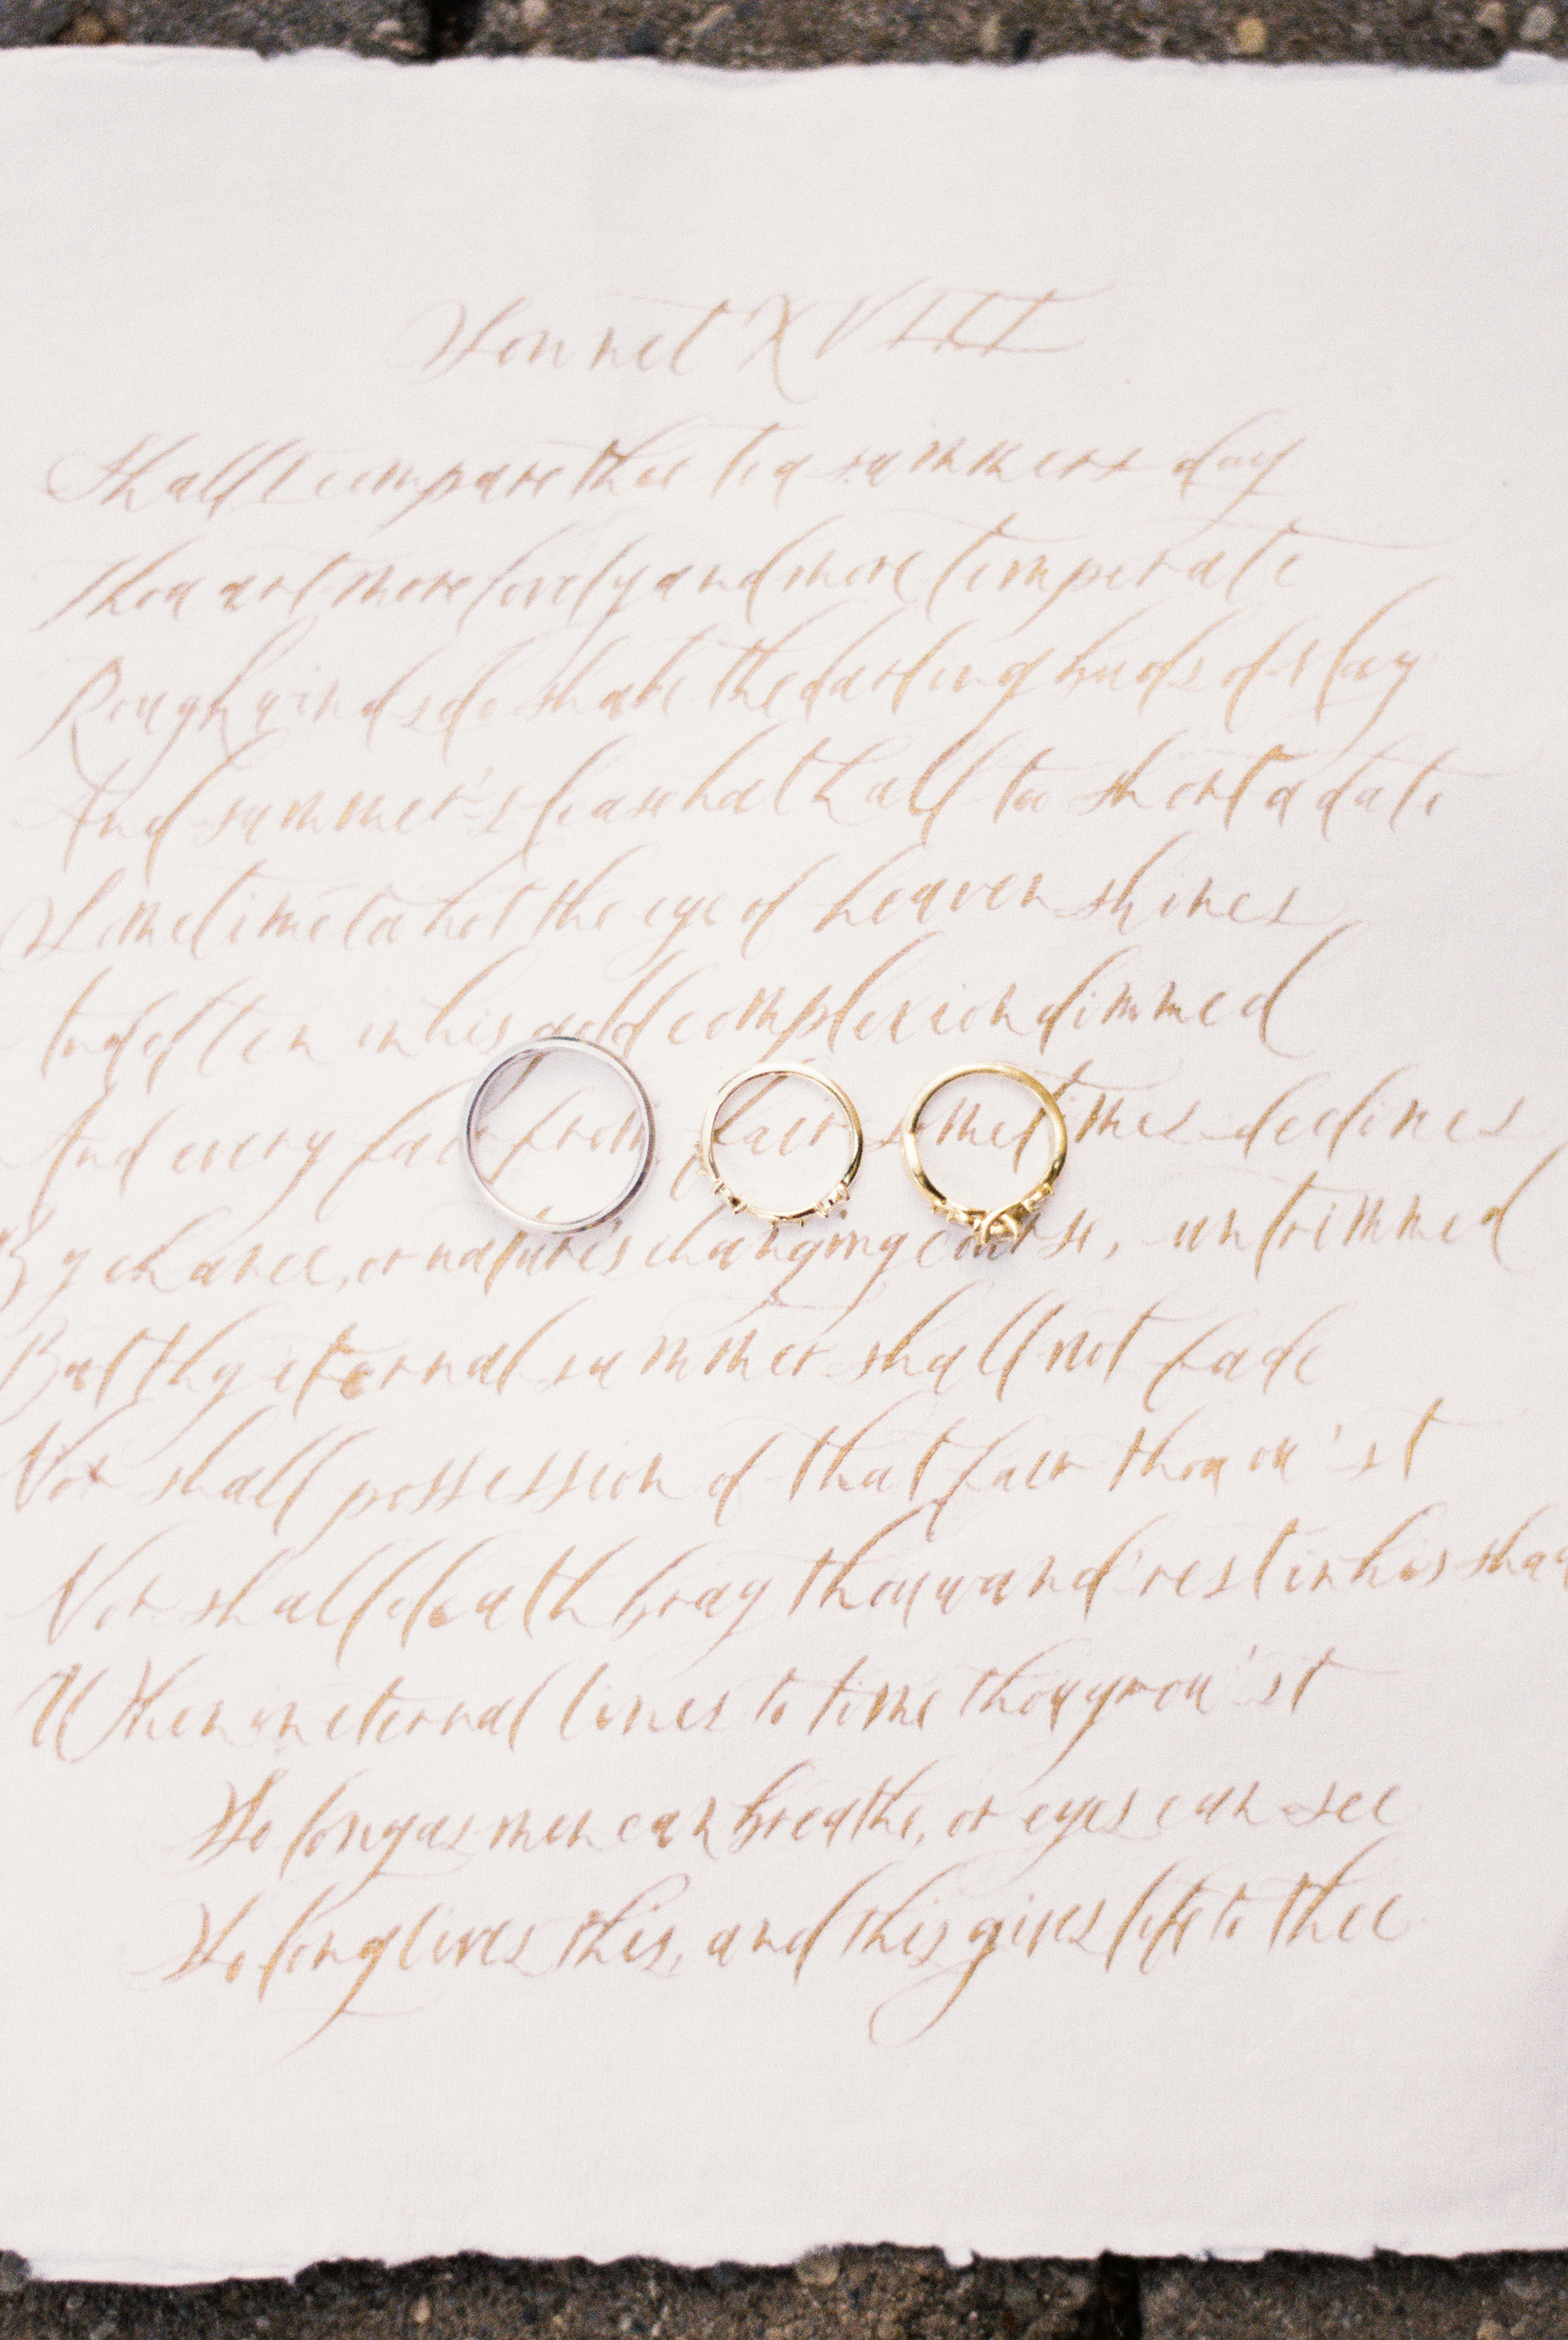 Sonnet XVIII
Shall I compare thee to a summers day
Thou art more lovely and more temperate
Rough winds do shake the darling buds of May
And summer's lease hath all too short a date
Sometime too hot the eye of heaven shines
And often in his gold complexion dimmed
And every fair from fair sometimes declines
By chance, or nature's changing course, untrimmed
But thy eternal summer shall not fade
Nor shall possession of that fair thou ow'st
Nor shall death brag thou wand'rest in his shad
When in eternal lines to time thou grow'st
So long as men can breathe, or eyes can see
So long lives this, and this gives life to thee